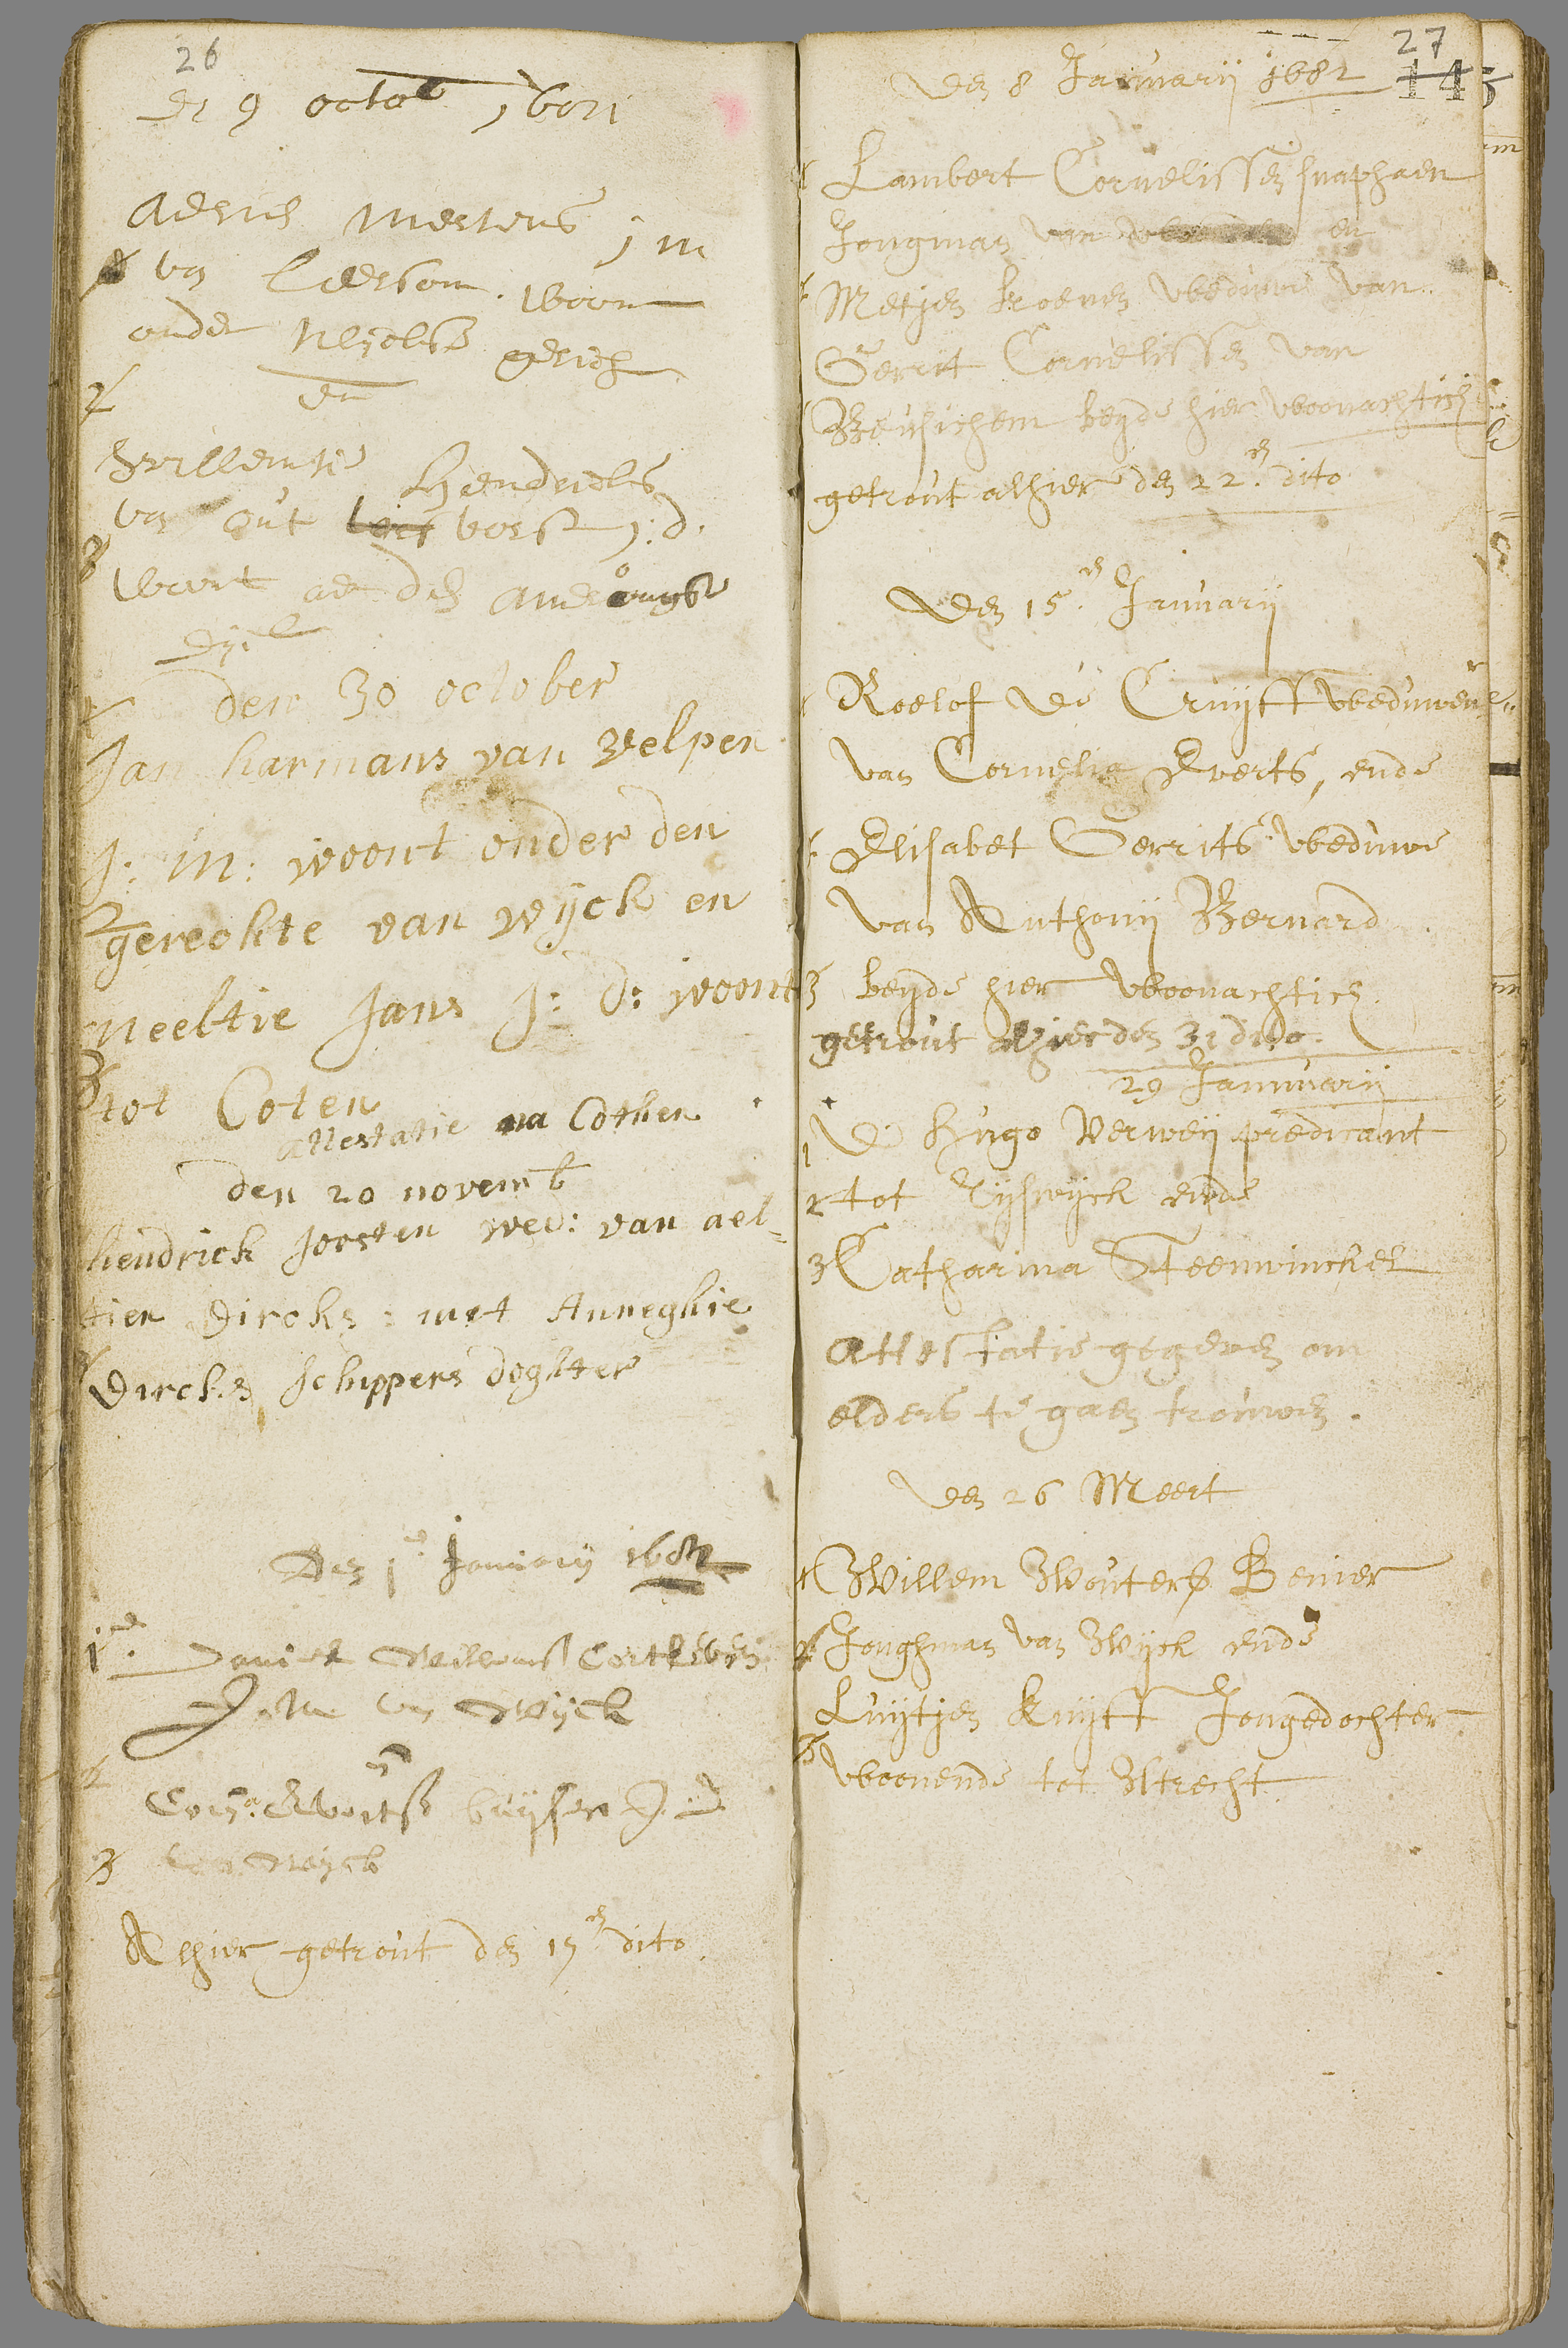 26
de 9 octob 1681
Aerris Mertens j m
1 van Leersom. woon
onder Nljolts gerich
2 en
Willemtie Hendricks
van out vorst j: d.
3 woont aen den amerongse
dijc
1 den 30 october
Jan harmans van velpen
J: m: woont onder den
2 gerechte van wijck en
neeltie Jans J: d: woont
3 tot Coten
attestatie na Cothen
den 20 novemb
hendrick Joosten wed: van ael-
tien Dircks: met Anneghie
Dircks, schippers doghter
Den 1e January 1682
1. Daniel Willems Cortleven
J. M van Wijck
2 en
Corn.a Evertse buijsen J. D
3 van Wijck
Alhier getrout den 17en dito.
27
143
Den 8 January 1682
1 Lambert Cornelissen snaphaen
Jongman van en
2 Metjen Koenen weduwe van
Gerrit Cornelissen van
3 Beusichem beyde hier woonachtich
getrout alhier den 22en. dito
Den 15en. January
1 Roelof de Cruyff weduwenr
van Cornelia Everts, ende
2 Elisabet Gerrits weduwe
van Anthony Bernard
3 beyde hier woonachtich.
getrout alhier den 31 dito.
29 Januuary
1 D. Hugo Verweij predicant
2 tot Rijswijck ende
3 Catharina Steenwinckel
attestatie gegeven om
elders te gaen trouwen.
Den 26 Meert
1 Willem Wouters Benier
2 Jonghman van Wijck ende
Luijtjen Kuijff Jongedochter
3 woonende tot Utrecht.